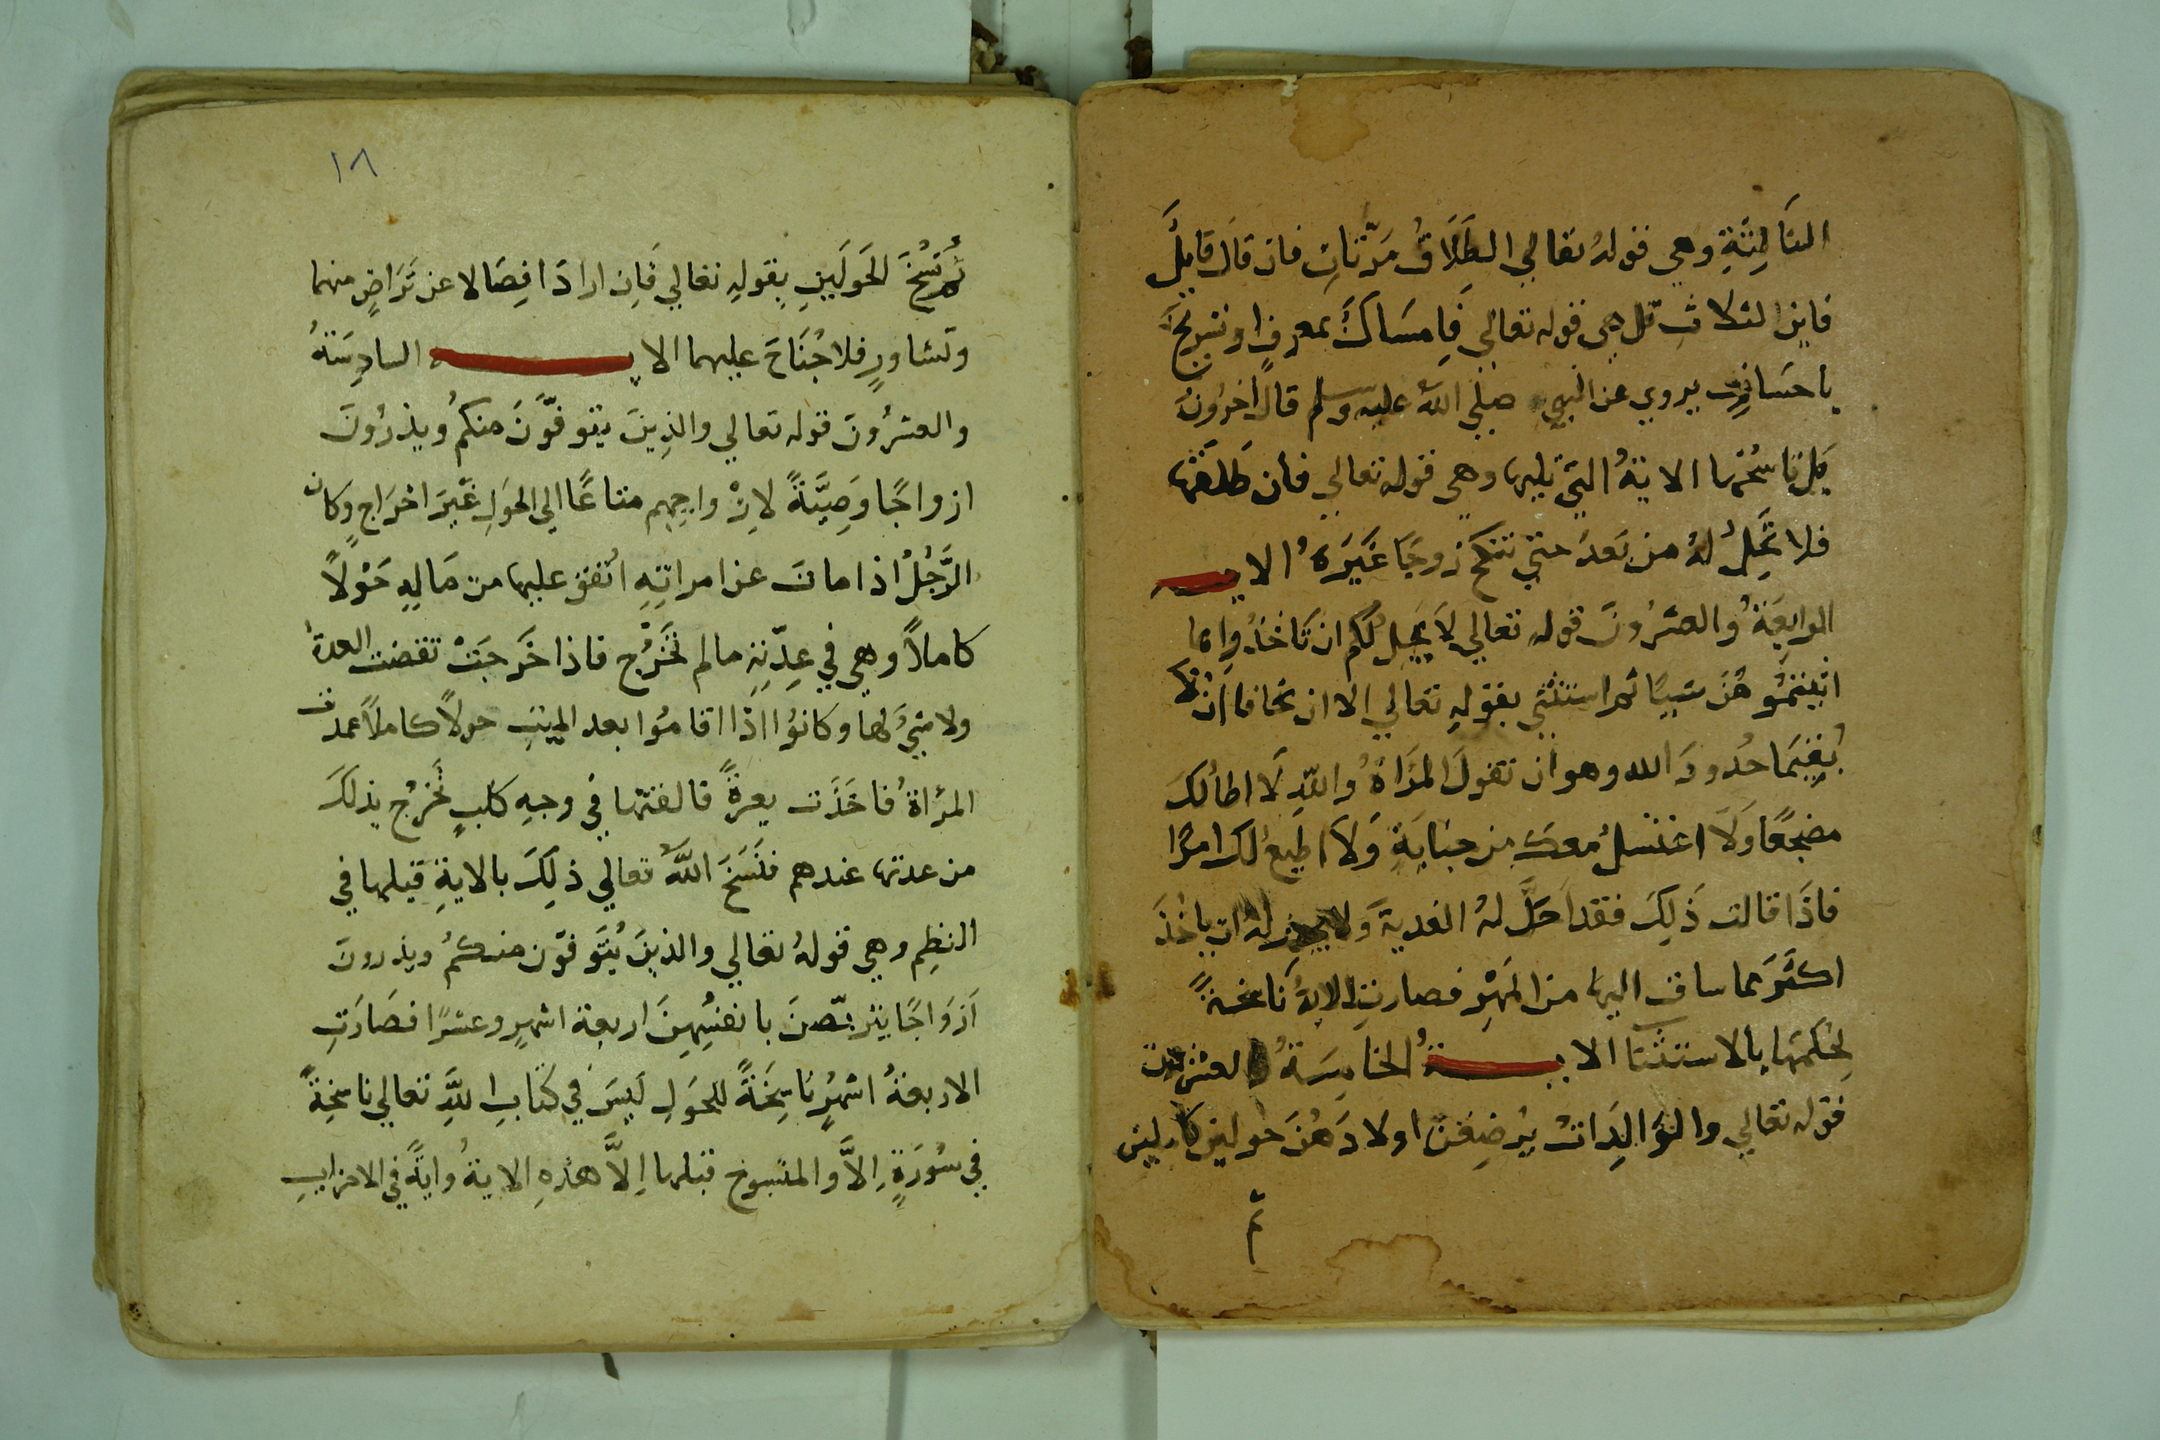 الثالِثَةِ وهي قولهُ تعالي الطَلَاقُ مَرّتاتِ فان قال قايلَ
فاين الثلاث قل هي قوله تعالي فَاِمسَاكَ بمعروفٍ او تسريحٌ
باحسانٍ يروي عن النبي صلي اللهُ عليه وسلم قال اخرُونَ
بل ناسُخها الايةُ التي تليها وهي قوله تعالي فان طَلقَها
فلا تَحِلُ لهُ من بَعدَ حتي تنكح زوجًا غَيَرَهُ الايـــه
الرابِعَةُ والعشرُونَ قولهِ تعالي لَا يحِل لكم ان تَاخُذُوا مما
اتيتمُو هُنَ شيئًا ثم استثني بقولهِ تعالي الا ان يخافا ان لا
يُقِيمَا حُدودَ الله وهو ان تقولَ المرَاةُ واللهِ لَا اطأ لكَ
مضجعًا وَلَا اغتسلُ معك من جنابَةٍ وَلا اطيعُ لك امرًا
فاذَا قالت ذَلِكَ فقد اَحَلَّ لهُ الفدية وَلا يجوز لهُ ان ياخُذَ
اكثَرَ مما ساق اليها من المَهْرِ فصارتِ الايةُ ناسخةً
لِحُكمَها بالاستثنَا الايـــةُ الخامِسَةُ والعشرون
قوله تعالي والوَالِدَاتُ يُرضِعْنَ اولادَهُنَ حولين كاملين
ثم
١٨
ثم نُسِخَ الحَولَينِ بِقولهِ تعالي فَاِن ارادَا فِصَالا عن تَرَاضٍ منهما
وتشاورٍ فلا جُنَاحَ عليهما الايـــه السادِسَةُ
والعشرُونَ قوله تعالي والذِينَ يتوفَّوَنَ منكمُ ويذرُونَ
ازواجًا وَصِيَّةً لازْواجِهِم متاعًا الي الحَولِ غَيرَ اخرَاجٍ وكان
الرَّجُلُ اذا مات عن امراتِهِ انفق عليها من مَالِهِ حَوْلاً
كاملاً وهي في عِدّتِهِ مالم تَخرُج فاذا خَرجَتْ تقضت العدة
ولا شيَ لها وكانوُا اذا اقامُوا بعد الميتِ حولاً كاملاً عمدت
المرْاةُ فاخَذَت بعرةً فالقتها في وجهِ كلبٍ تخْرُج بذلكَ
من عدتها عندهم فنَسَخَ اللهُ تعالي ذلِكَ بالايةِ قبلها في
النظِم وهي قولهُ تعالي والذينَ يُتَوفّون منكُم ويذرونَ
اَزوَاجًا يتربّصنَ بانفسِهِنَ اربعة اشهرٍ وعشرًا فصَارَتِ
الاربعةُ اشهُرٍ ناسِخَةً للحَولِ لَيسَ في كتابِ اللهِ تعالي ناسِخةٌ
في سُورَةٍ اِلاَّ والمنسوخ قبلها اِلاَّ هذهِ الايةُ وايةٌ في الاحزابِ